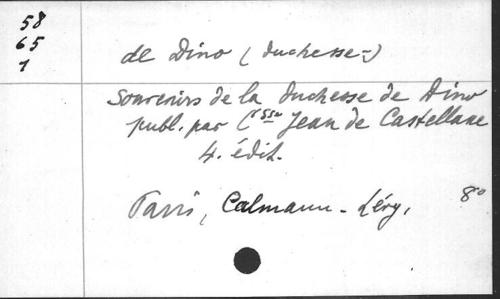 58
65
1
de Dino (duchesse-)
Souvenirs de la duchesse de Dino
publ. par Ctsse Jean de Castellane
4. édit.
Paris, Calmann-Lévy,
8°